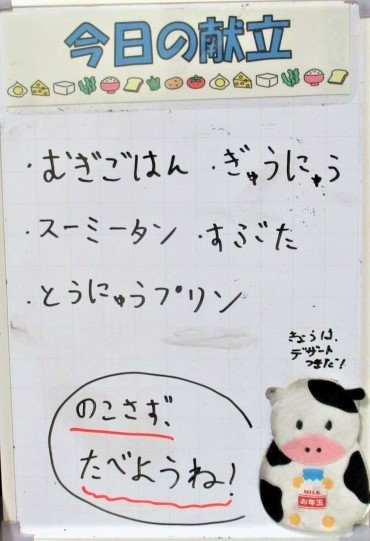 今日の献立
・むぎごはん ・ぎゅうにゅう
・スーミータン ・すぶた
・とうにゅうプリン
きょうは、
デザート
つきだ！
のこさず、
たべようね！
MILK
お年玉